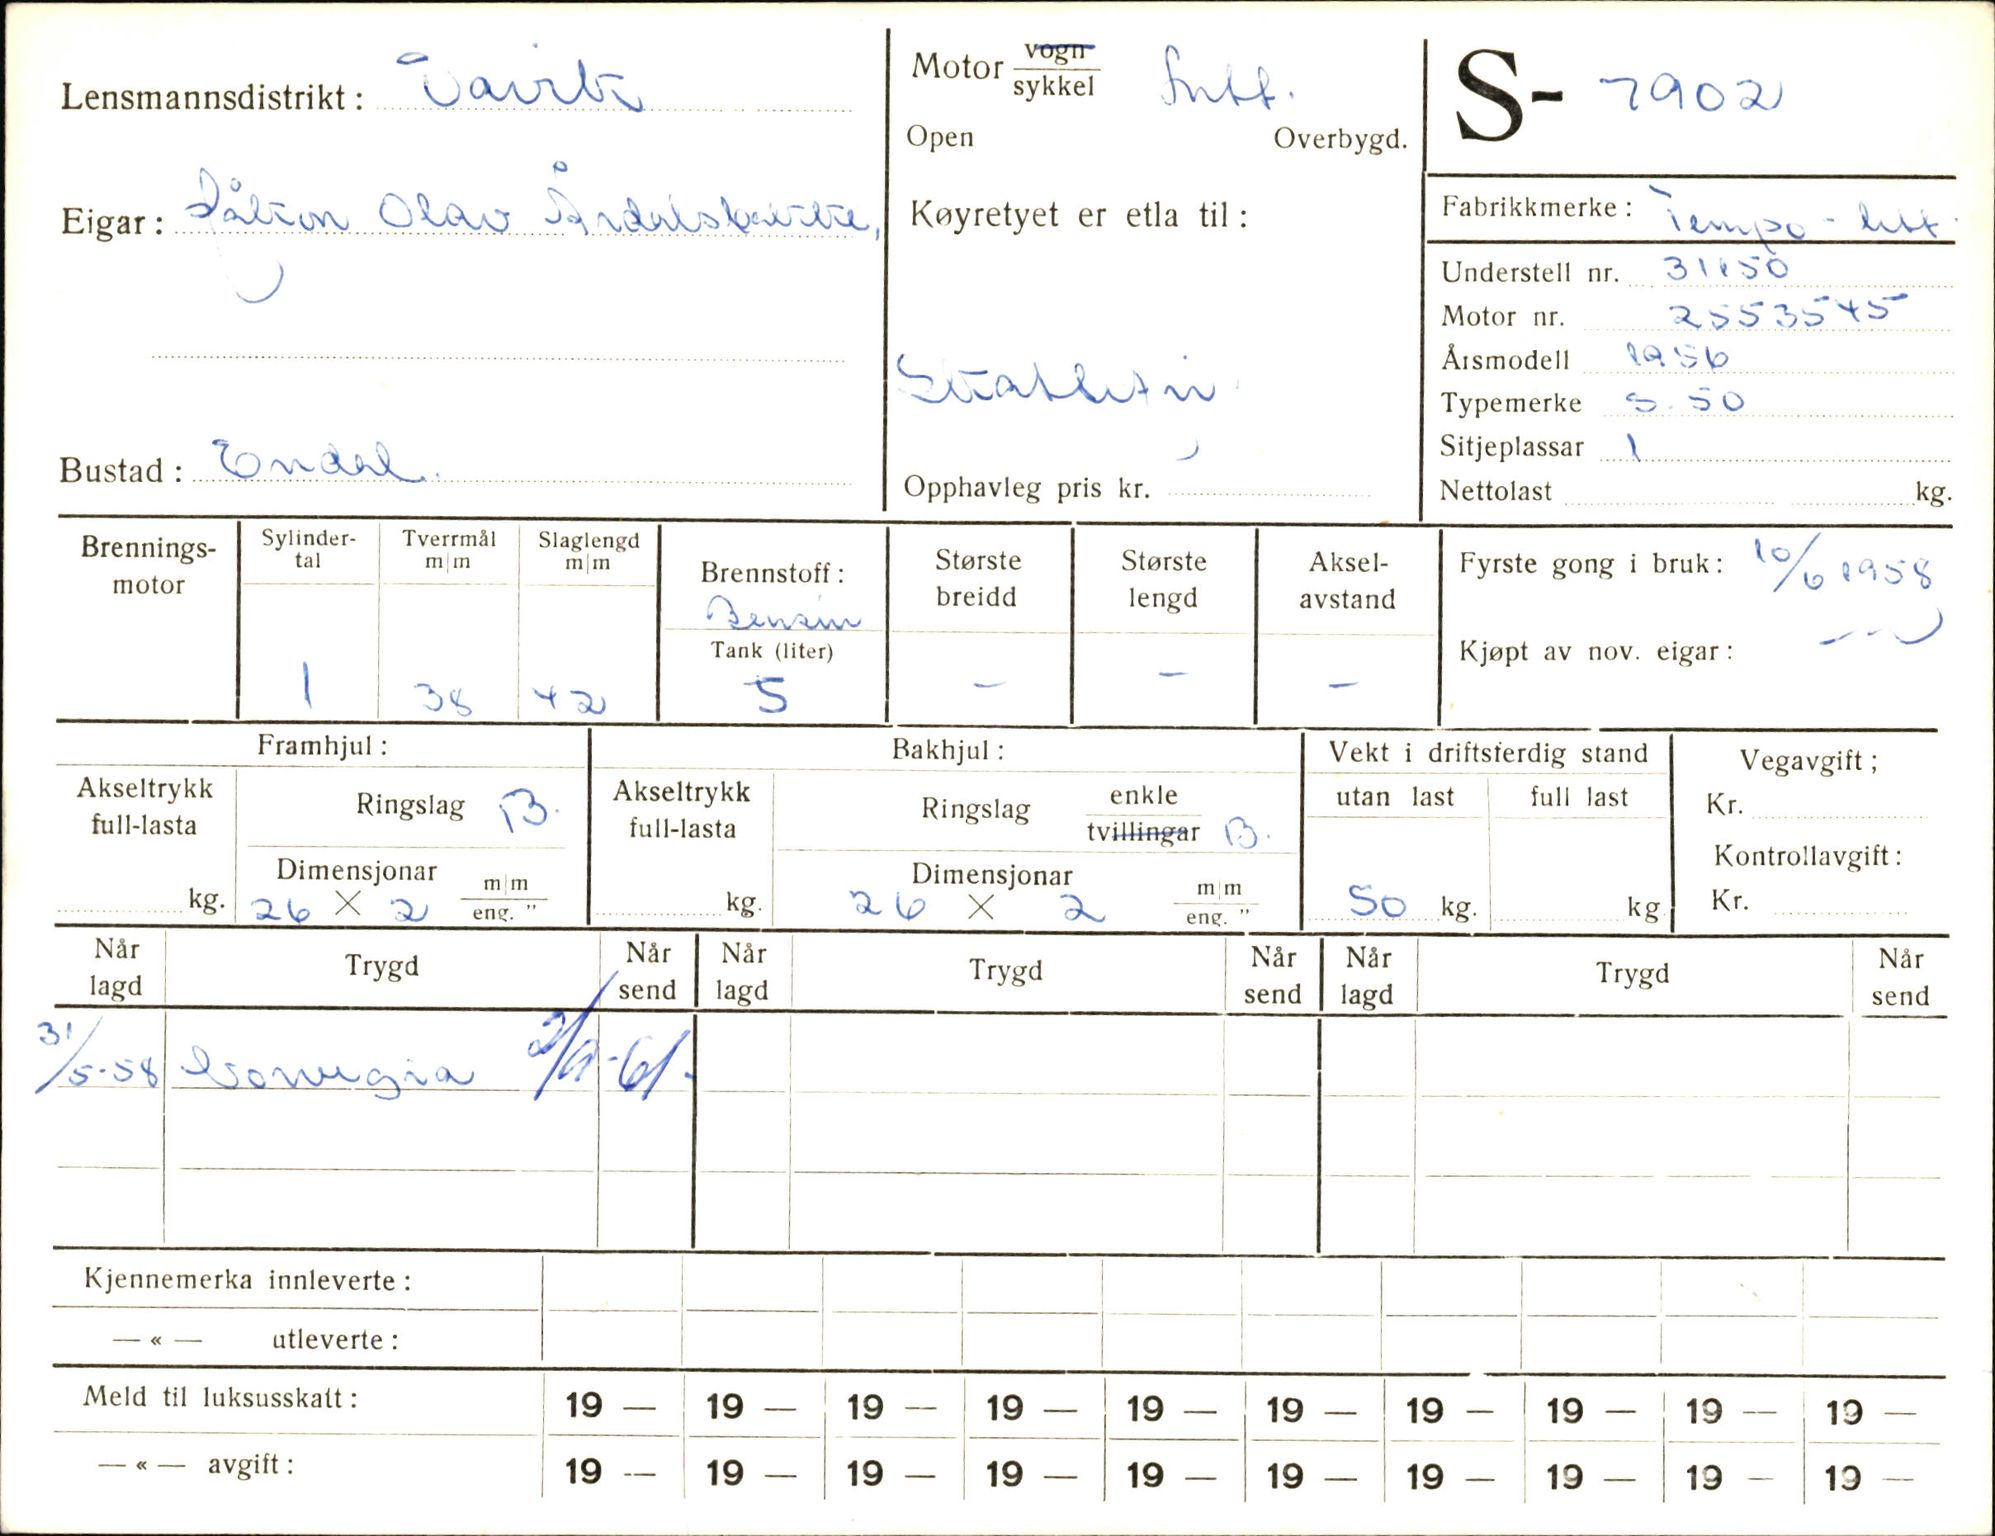 Lensmannsdistrikt:
Motor vogn
sykkel
lett.
S- 7902
Open Overbygd.
Eigar: Håkon Olav Årdalsbakke,
Køyretyet er etla til:
Fabrikkmerke: Tempo - lett.
Understell nr. 31150
Motor nr. 2553545
Årsmodell 1956
Typemerke S. 50
Sitjeplassar 1
Nettolast kg.
Bustad:
Opphavleg pris kr.
Brennings-
motor
Sylinder-
tal
1
Tverrmål
m|m
38
Slaglengd
m|m
42
Brennstoff:
Bensin
Tank (liter)
5
Største
breidd
-
Største
lengd
-
Aksel-
avstand
-
Fyrste gong i bruk: 10/6 1958
Kjøpt av nov. eigar: - " -
Framhjul:
Akseltrykk
full-lasta
kg.
Ringslag B.
Dimensjonar
26 X 2 m|m
eng. "
Bakhjul:
Akseltrykk
full-lasta
kg.
Ringslag enkle
tvillingar B.
Dimensjonar
26 X 2 m|m
eng. "
Vekt i driftsferdig stand
utan last full last
50 kg. kg
Vegavgift;
Kr.
Kontrollavgift:
Kr.
Når
lagd
Trygd
Når
send
Når
lagd
Trygd
Når
send
Når
lagd
Trygd
Når
send
31/5-58 Norvegia 2/9-61.
Kjennemerka innleverte:
— « — utleverte:
Meld til luksusskatt: 19 — 19 — 19 — 19 — 19 — 19 — 19 — 19 — 19 — 19 —
— « — avgift: 19 — 19 — 19 — 19 — 19 — 19 — 19 — 19 — 19 — 19 —